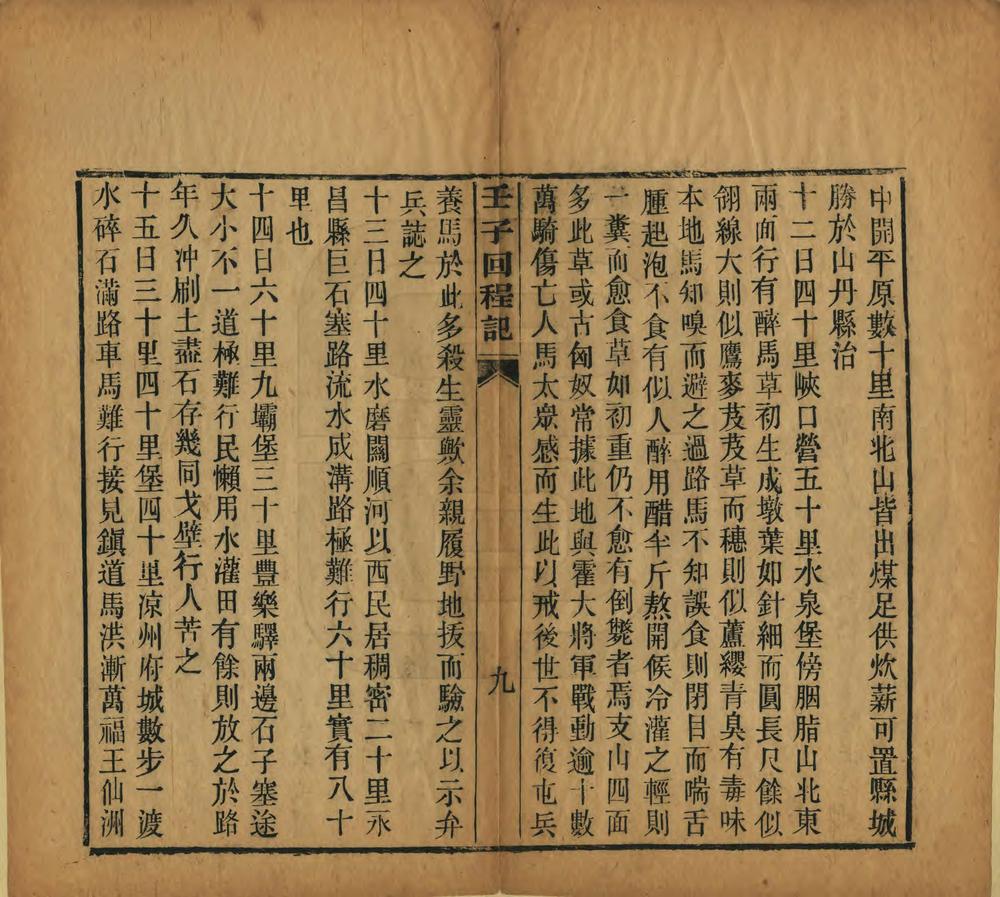 中開平原數十里南北山皆出煤足供炊薪可置縣城
勝於山丹縣治
十二日四十里峽口營五十里水泉堡傍胭脂山北東
兩面行有醉馬草初生成墩葉如針細而圓長尺餘似
翎線大則似鷹麥芨芨草而穗則似蘆纓青臭有毒味
本地馬知嗅而避之過路馬不知誤食則閉目而喘舌
腫起泡不食有似人醉用醋半斤熬開候冷灌之輕則
一糞而愈食草如初重仍不愈有倒斃者焉支山四面
多此草或古匈奴常據此地與霍大將軍戰動逾十數
萬騎傷亡人馬太眾感而生此以戒後世不得復屯兵
壬子回程記
九
養馬於此多殺生靈歟余親履野地拔而驗之以示弁
兵誌之
十三日四十里水磨關順河以西民居稠密二十里永
昌縣巨石塞路流水成溝路極難行六十里實有八十
里也
十四日六十里九壩堡三十里豐樂驛兩邊石子塞途
大小不一道極難行民懶用水灌田有餘則放之於路
年久冲刷土盡石存幾同戈壁行人苦之
十五日三十里四十里堡四十里涼州府城數步一渡
水碎石滿路車馬難行接見鎮道馬洪漸萬福王仙洲